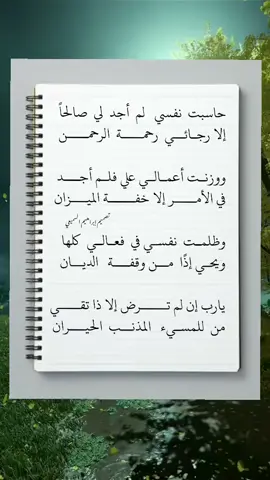 حاسبت نفسي لم أجد لي صالحاً
إلا رجائي رحمة الرحمن
ووزنت أعمالي علي فلم أجد
في الأمر إلا خفة الميزان
تصميم إبراهيم السميعي
وظلمت نفسي في فعالي كلها
ويحي إذًا من وقفة الديان
يارب إن لم ترض إلا ذا تقي
من للمسيء المذنب الحيران